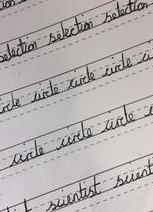 selection selection selection
circle circle circle
circle circle circle
scientist